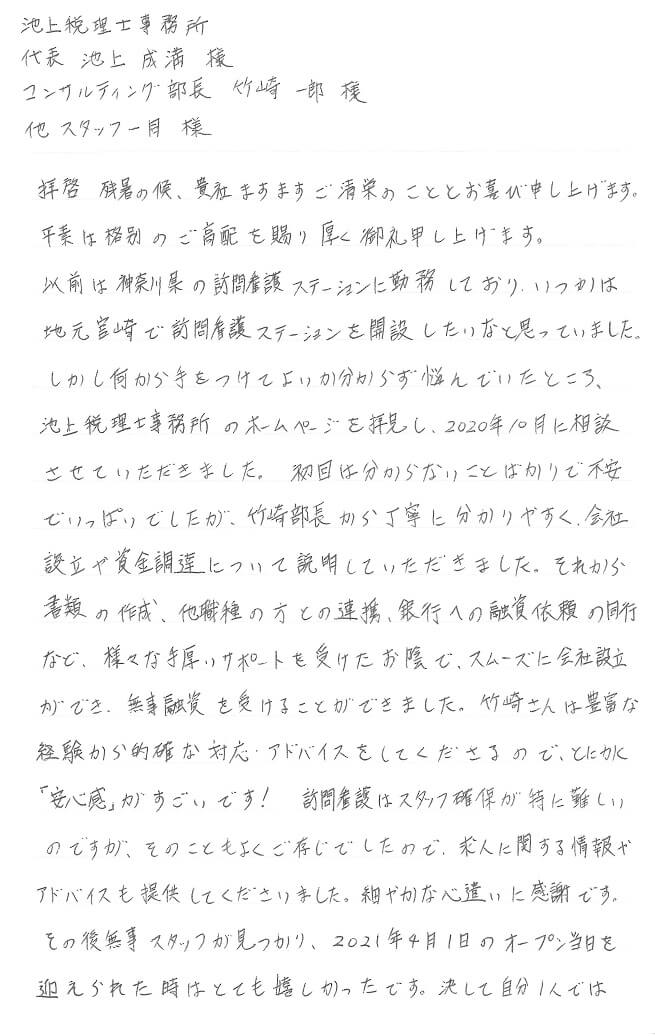 池上税理士事務所
代表 池上 成満 様
コンサルティング部長 竹崎 一郎 様
他 スタッフ一同 様
拝啓 残暑の候、貴社ますますご清栄のこととお喜び申し上げます。
平素は格別のご高配を賜り厚く御礼申し上げます。
以前は神奈川県の訪問看護ステーションに勤務しており、いつかは
地元宮崎で訪問看護ステーションを開設したいなと思っていました。
しかし何から手をつけてよいか分からず悩んでいたところ、
池上税理士事務所のホームページを拝見し、2020年10月に相談
させていただきました。 初回は分からないことばかりで不安
でいっぱいでしたが、竹崎部長から丁寧に分かりやすく、会社
設立や資金調達について説明していただきました。それから
書類の作成、他職種の方との連携、銀行への融資依頼の同行
など、様々な手厚いサポートを受けたお陰で、スムーズに会社設立
ができ、無事融資を受けることができました。竹崎さんは豊富な
経験から的確な対応・アドバイスをしてくださるので、とにかく
「安心感」がすごいです! 訪問看護はスタッフ確保が特に難しい
のですが、そのこともよくご存じでしたので、求人に関する情報や
アドバイスも提供してくださいました。細やかな心遣いに感謝です。
その後無事スタッフが見つかり、2021年4月1日のオープン当日を
迎えられた時はとても嬉しかったです。決して自分1人では